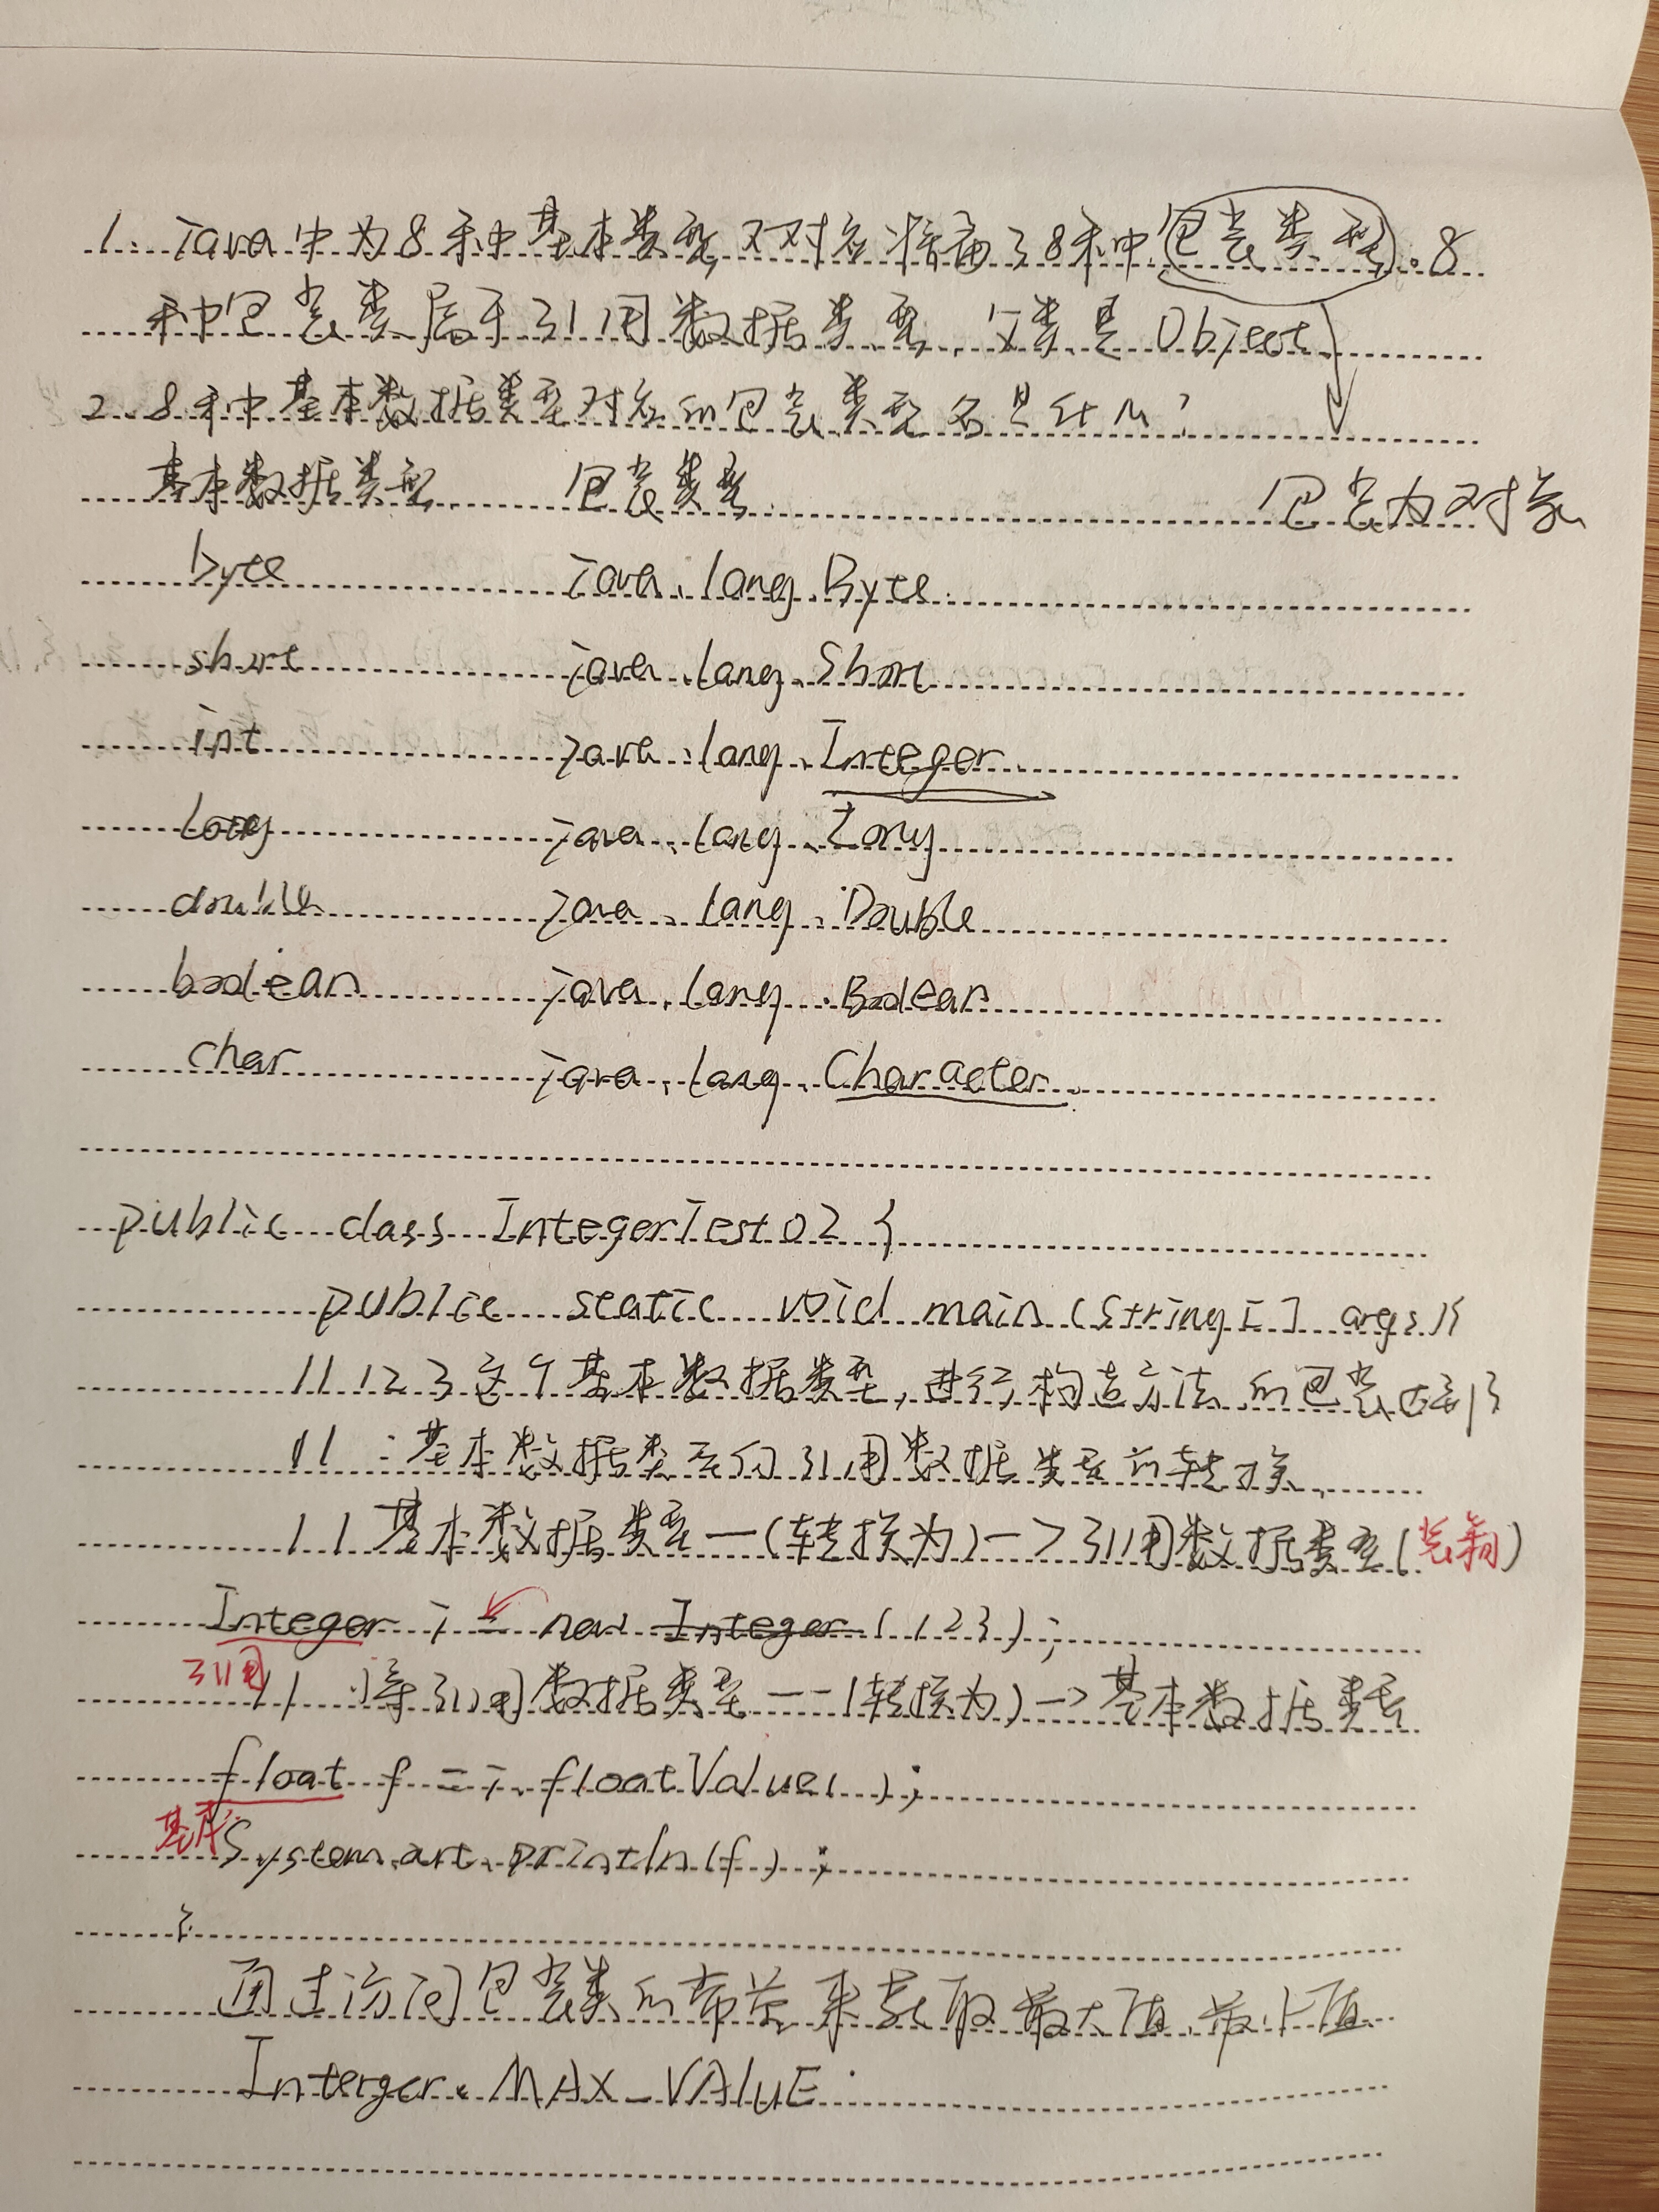 1. java中为8种基本类型又对应准备了8种包装类型。8
种包装类属于引用数据类型,父类是Object
2. 8种基本数据类型对应的包装类型名是什么?
基本数据类型 包装类型 包装为对象
byte java.lang.Byte
short java.lang.Short
int java.lang.Integer
long java.lang.Long
double java.lang.Double
boolean java.lang.Boolean
char java.lang.Character
public class IntegerTest02 {
public static void main(String[] args){
//123这个基本数据类型,进行构造方法的包装达到了
//:基本数据类型向引用数据类型的转换
//基本数据类型—(转换为)->引用数据类型(装箱)
Integer i = new Integer(123);
引用
//将引用数据类型--(转换为)->基本数据类型
float f = i.floatValue();
基本
System.out.println(f);
}
通过访问包装类的常量来获取最大值、最小值
Interger.MAX_VALUE